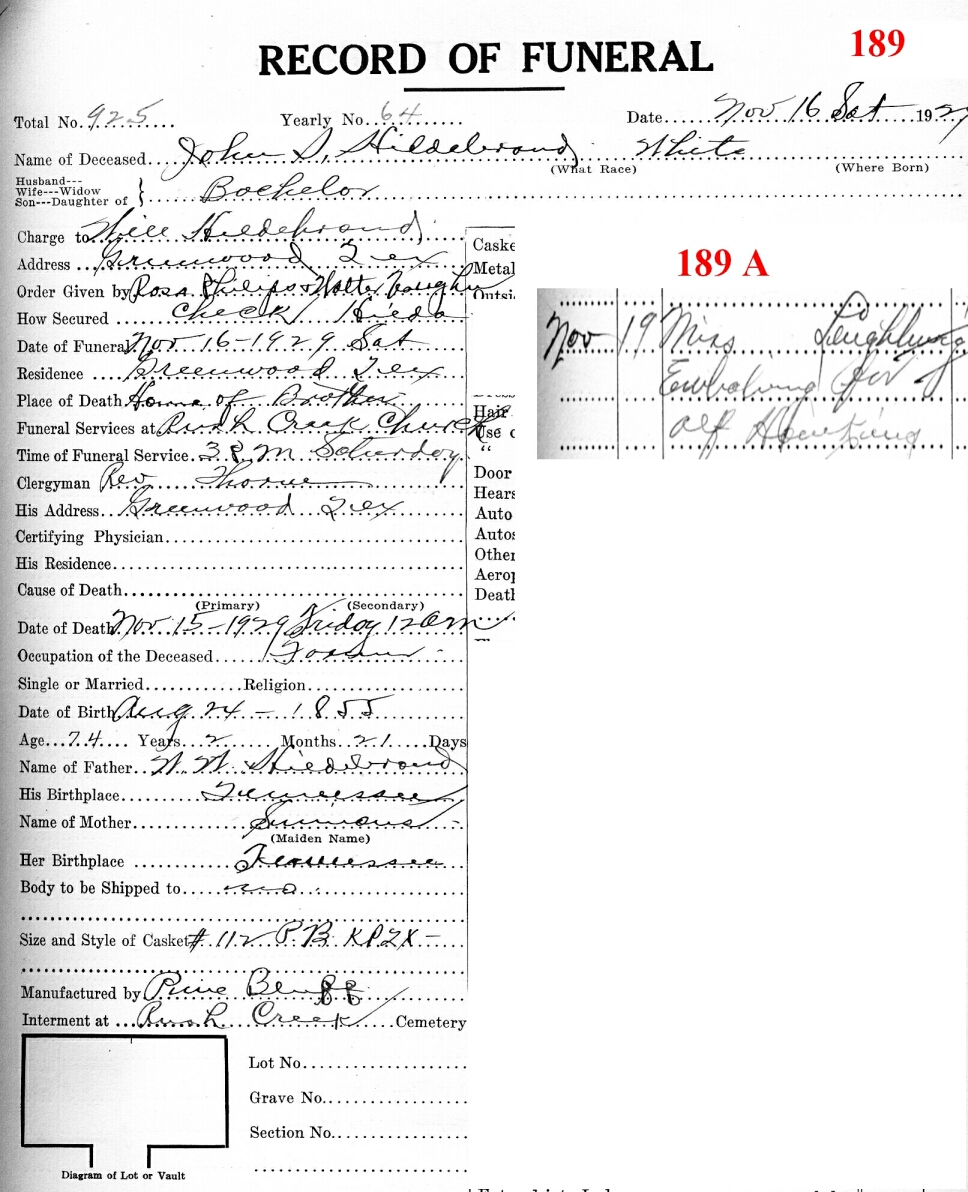 189
RECORD OF FUNERAL
Total No. 925 Yearly No. 64 Date Nov 16 Sat 1929
Name of Deceased John S. Hildebrand White
(What Race) (Where Born)
Husband---
Wife---Widow
Son---Daughter of } Bachelor
Charge to Will Hildebrand
Address Greenwood Tex
Order Given by Ross Philips & Walter Vaughn
How Secured Check
Date of Funeral Nov 16-1929 Sat
Residence Greenwood Tex
Place of Death Home of Brother
Funeral Services at Rush Creek Church
Time of Funeral Service 3 P.M. Saturday
Clergyman Rev. Thorne
His Address Greenwood Tex
Certifying Physician
His Residence
Cause of Death
(Primary) (Secondary)
Date of Death Nov. 15-1929 Friday 12 am
Occupation of the Deceased Farmer
Single or Married Religion
Date of Birth Aug 24-1855
Age 74 Years 2 Months 21 Days
Name of Father W. W. Hildebrand
His Birthplace Tennessee
Name of Mother Simmons
(Maiden Name)
Her Birthplace Tennessee
Body to be Shipped to no
Size and Style of Casket # 112 P.B. KPZX
Manufactured by Pine Bluff
Interment at Rush Creek Cemetery
Lot No.
Grave No.
Section No.
Diagram of Lot or Vault
Caske
Metal
Outsi
Hair
Use o
"
Door
Hears
Auto
Autos
Other
Aerop
Death
189 A
Nov 19 Miss
Embalming for
Alf